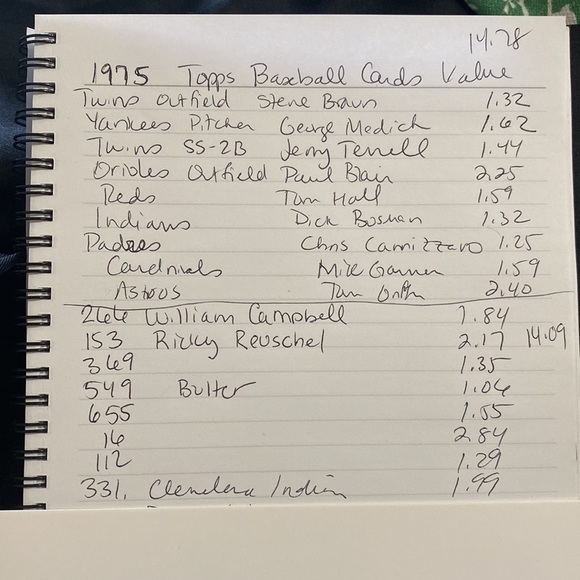 14.78
1975 Topps Baseball Cards Value
Twins Outfield Steve Braun 1.32
Yankees Pitcher George Medich 1.62
Twins SS-2B Jerry Terrell 1.44
Orioles Outfield Paul Blair 2.25
Reds Tom Hall 1.59
Indians Dick Bosman 1.32
Padres Chris Cannizzaro 1.25
Cardinals 1.59
Astros 2.40
266 William Campbell 1.84
153 Ricky Reuschel 2.17 14.09
369 1.35
549 Butler 1.06
655 1.55
16 2.84
112 1.29
331. Indian 1.99